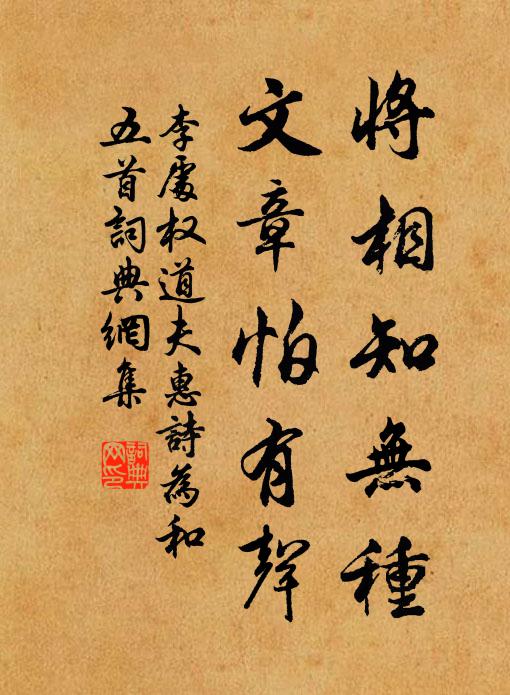 将相知無種
文章怕有聲
李處权道夫惠詩為和
五首詞典網集
詞典
网印